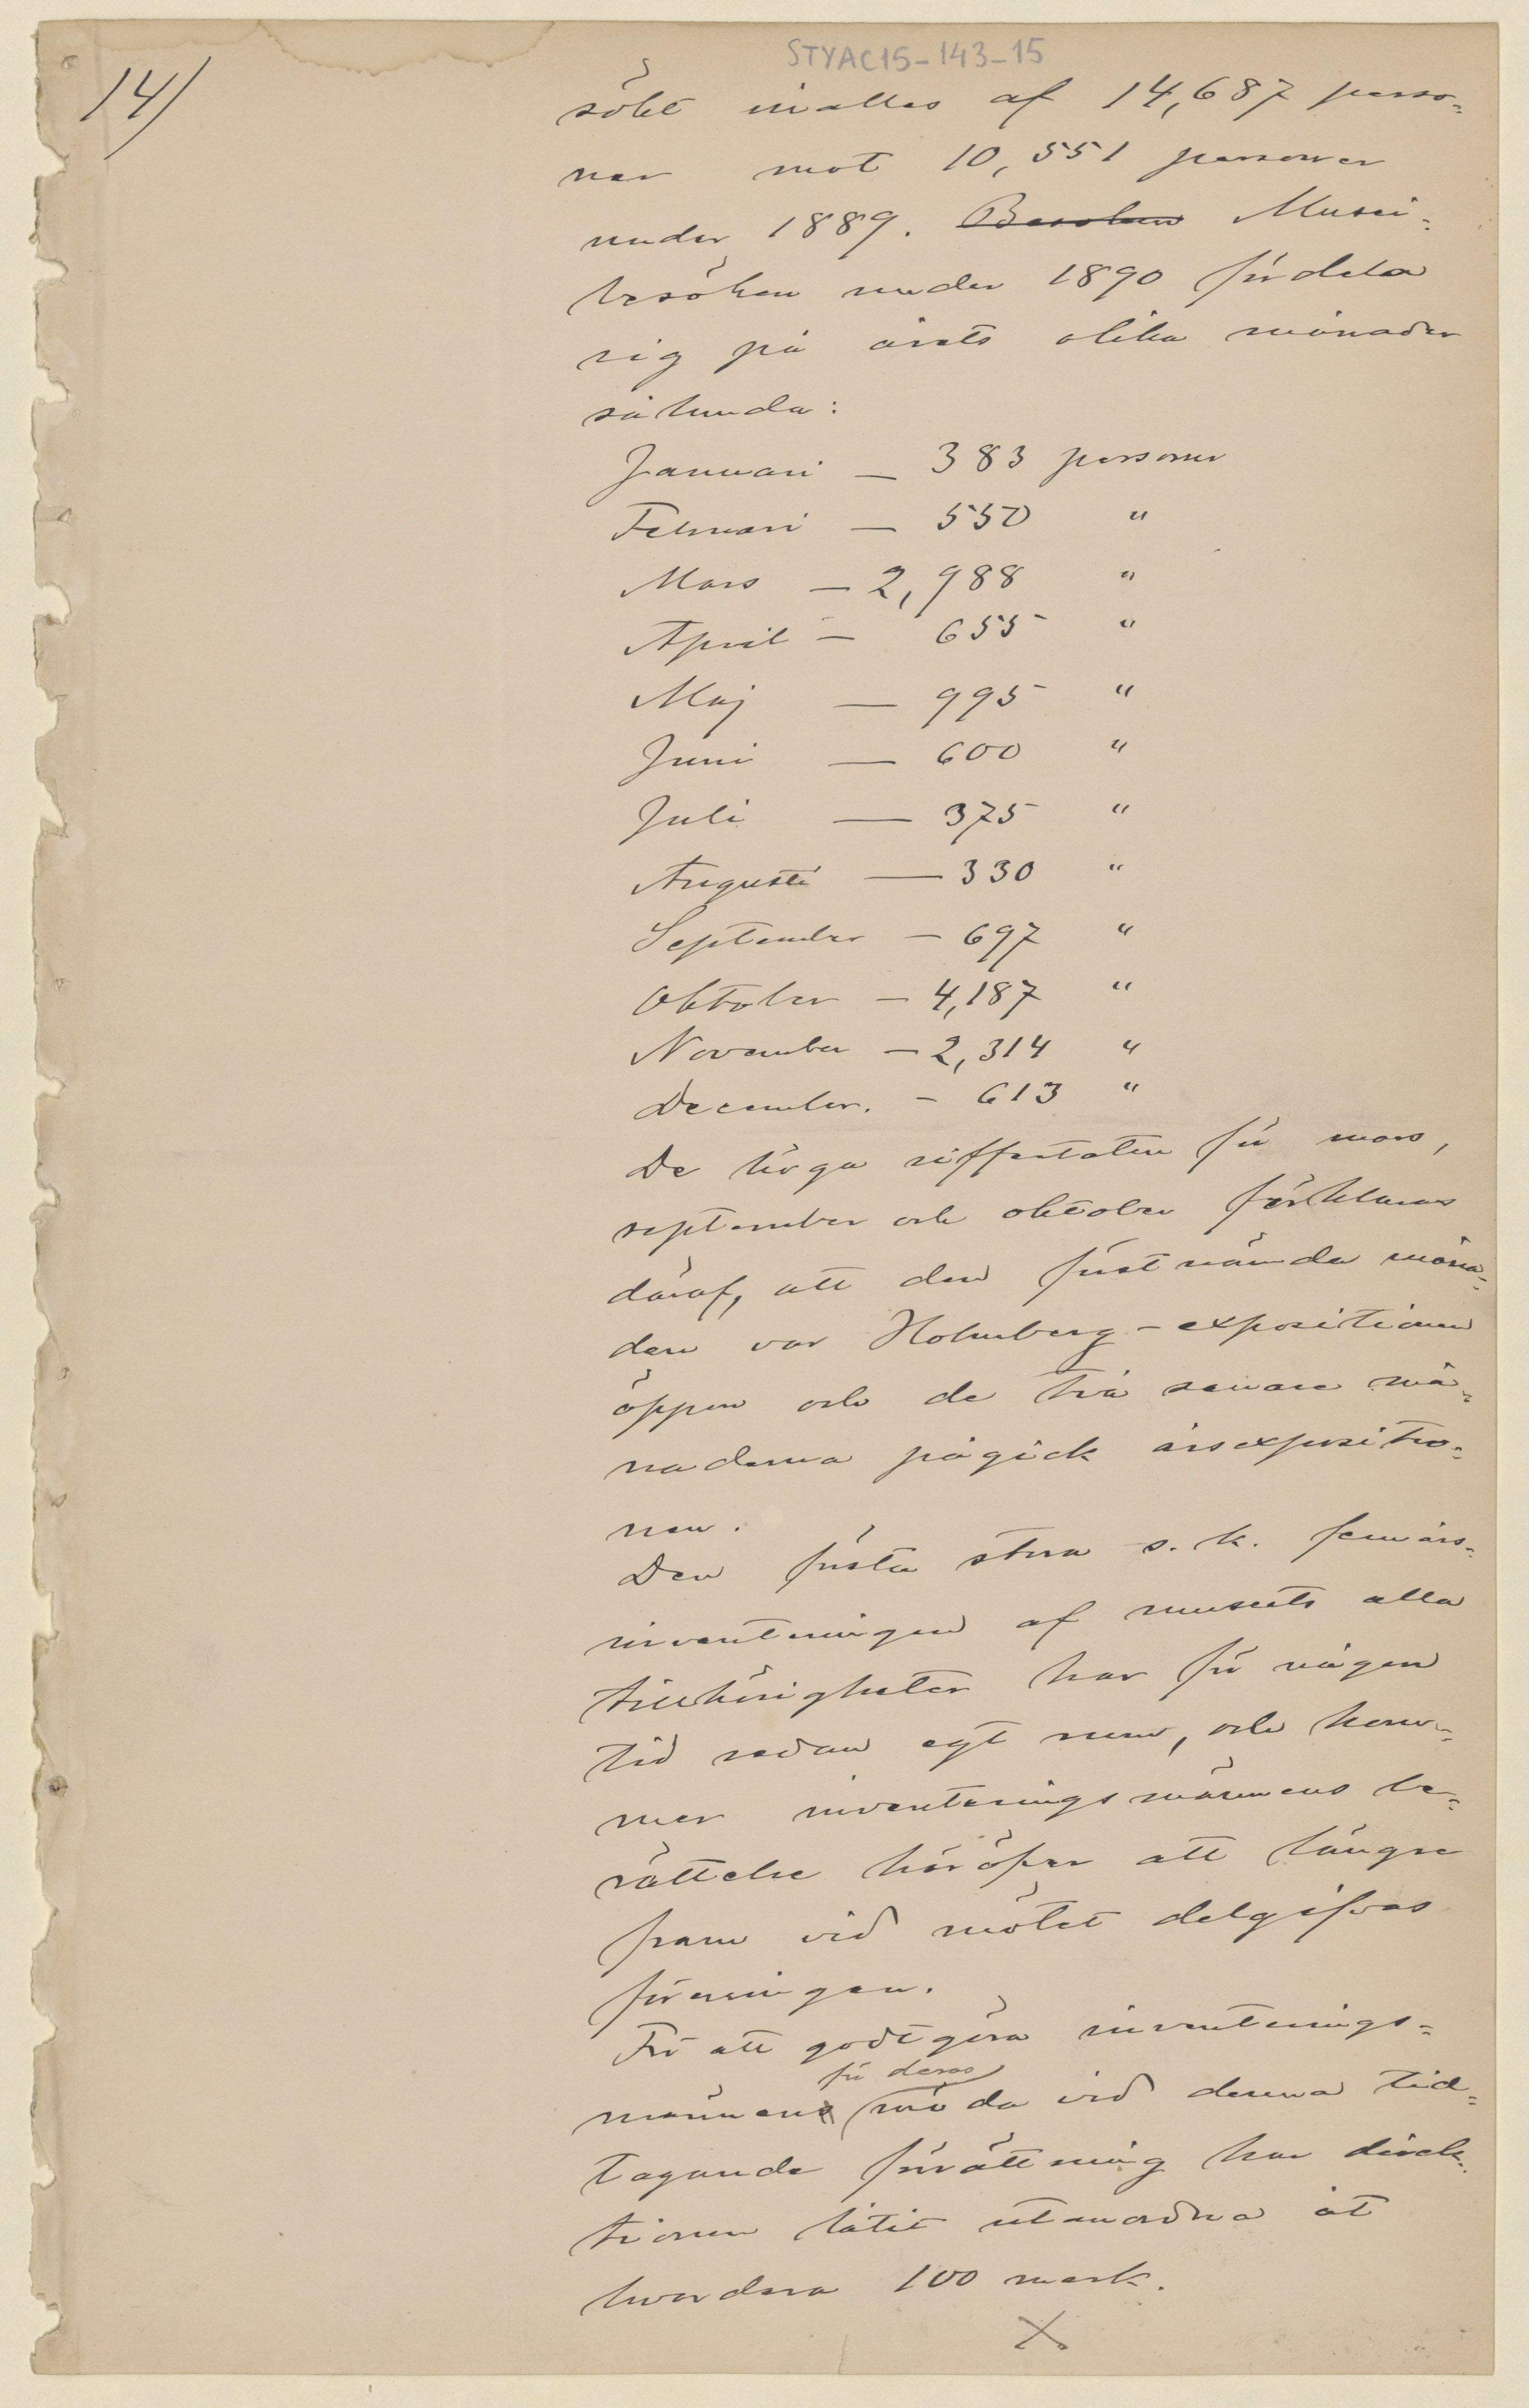 STYAC15-143-15
14/
sökt inalles af 14,687 perso-
ner mot 10,551 personer
under 1889. Besöken Musei-
besöken under 1890 fördela
sig på årets olika månader
sålunda:
Januari — 383 personer
Februari — 550 "
Mars — 2,988 "
April — 655 "
Maj — 995 "
Juni — 600 "
Juli — 375 "
Augusti — 330 "
September — 697 "
Oktober — 4,187 "
November — 2,314 "
December. — 613 "
De höga siffertalen för mars,
september och oktober förklaras
däraf, att den först nämnda måna-
den var Holmberg-expositionen
öppen och de två senare må-
naderna pågick årsexpositio-
nen.
Den första stora s. k. femårs-
inventeringen af museets alla
tillhörigheter har för någon
tid sedan egt rum, och kom-
mer inventeringsmännens be-
rättelse häröfver att längre
fram vid mötet delgifvas
föreningen.
För att godtgöra inventerings-
för deras
männens möda vid denna tid-
tagande förrättning har direk-
tionen låtit utanordna åt
hvardera 100 mark.
X